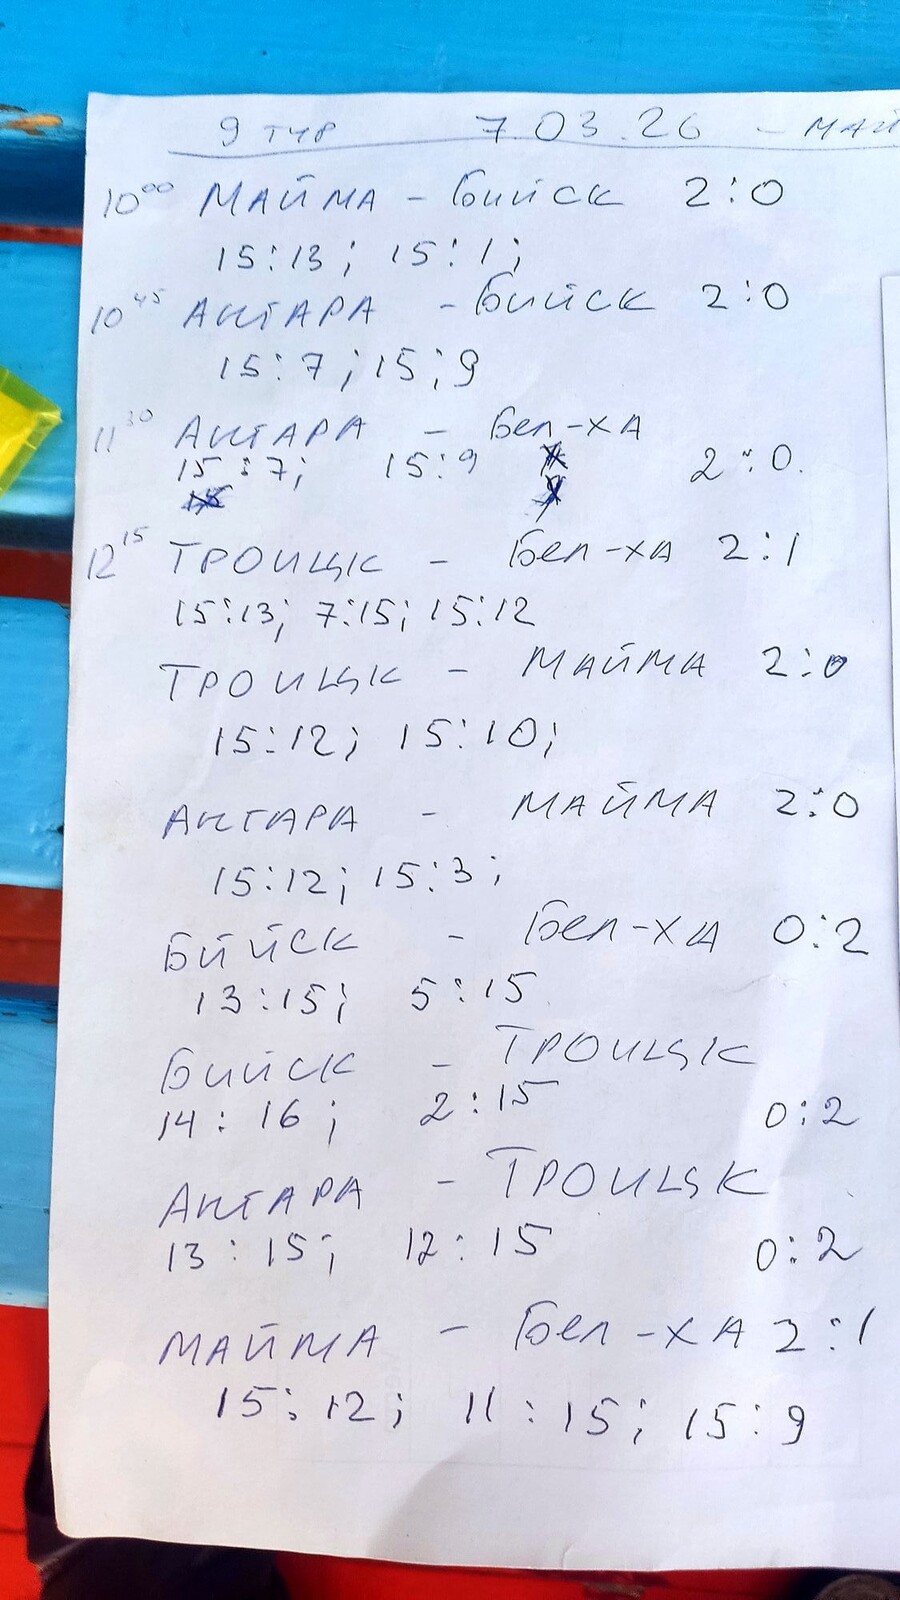 9 тур 7.03.26 - МАЙ
10⁰⁰ МАЙМА - Бийск 2:0
15:13; 15:1;
10⁴⁵ АНГАРА - Бийск 2:0
15:7; 15;9
11³⁰ АНГАРА - Бел-ха
15:7; 15:9 2:0.
12¹⁵ ТРОИЦК - Бел-ха 2:1
15:13; 7:15; 15:12
ТРОИЦК - МАЙМА 2:0
15:12; 15:10;
АНГАРА - МАЙМА 2:0
15:12; 15:3;
Бийск - Бел-ха 0:2
13:15; 5:15
Бийск - ТРОИЦК
14:16; 2:15 0:2
АНГАРА - ТРОИЦК
13:15; 12:15 0:2
МАЙМА - Бел-ха 2:1
15:12; 11:15; 15:9